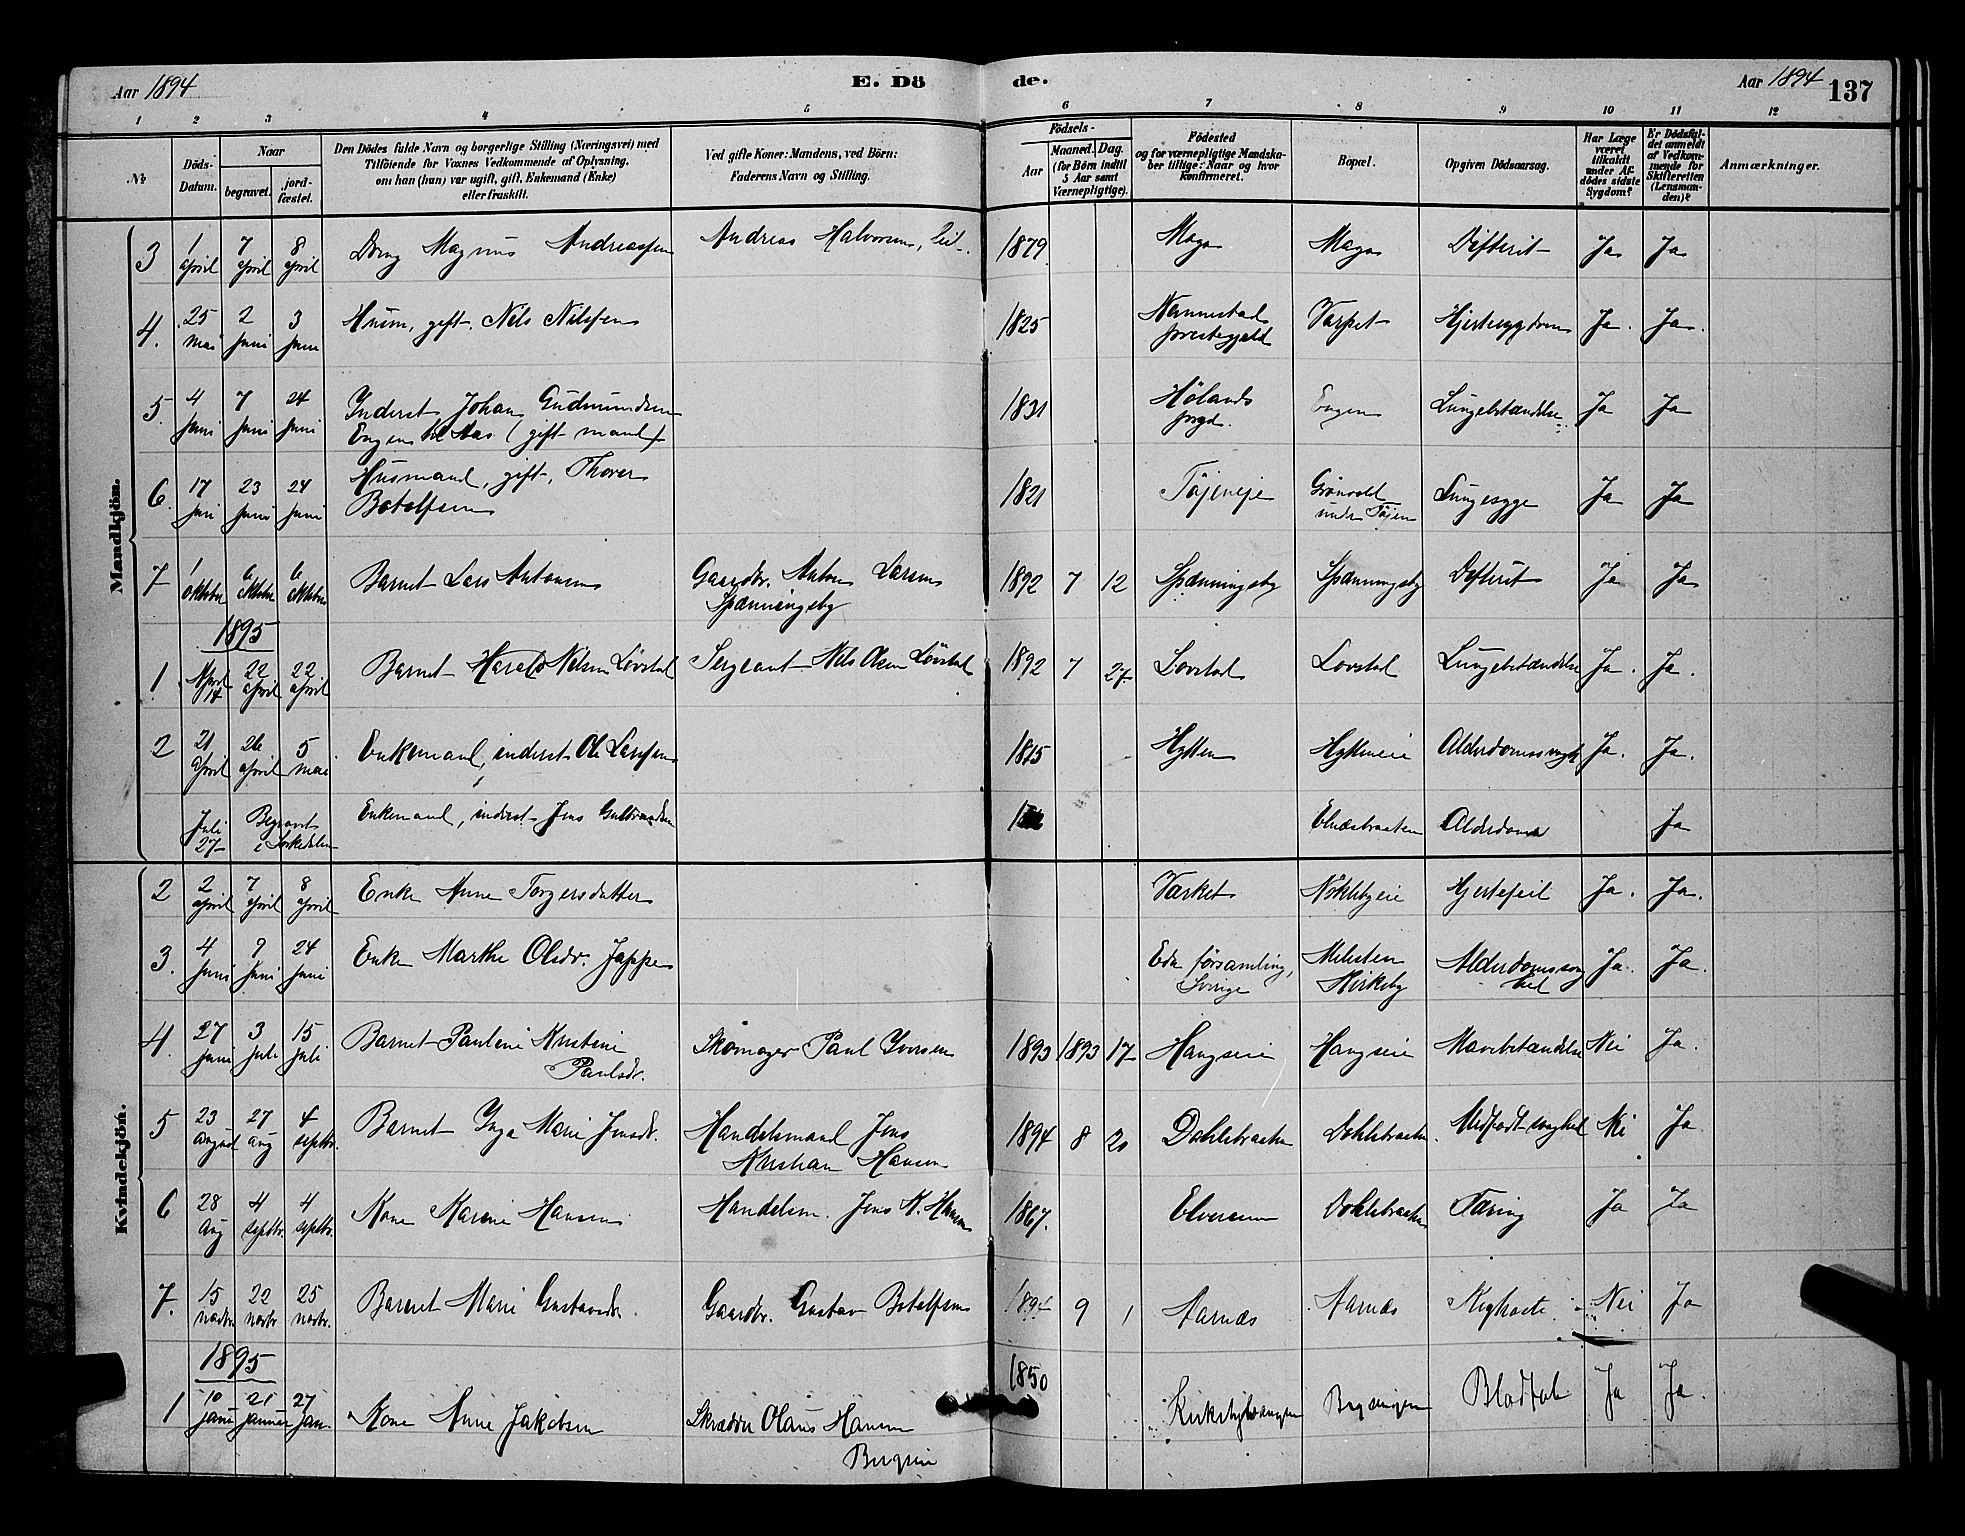 Aar 1894
E. Dö
de.
Aar 1894
137
1 2 3 4 5 6 7 8 9 10 11 12
№
Döds-
Datum.
Naar
begravet.
jord-
fæstet.
Den Dödes fulde Navn og borgerlige Stilling (Næringsvei) med
Tilföiende for Voxnes Vedkommende af Oplysning,
om han (hun) var ugift, gift, Enkemand (Enke)
eller fraskilt.
Ved gifte Koner: Mandens, ved Börn:
Faderens Navn og Stilling.
Födsels-
Aar
Maaned. Dag.
(for Börn indtil
5 Aar samt
Værnepligtige).
Födested
og for værnepligtige Mandska-
ber tillige: Naar og hvor
konfirmeret.
Bopæl.
Opgiven Dödsaarsag.
Har Læge
været
tilkaldt
under Af-
dödes sidste
Sygdom?
Er Dödsfal-
det anmeldt
af Vedkom-
mende for
Skifteretten
(Lensman-
den)?
Anmærkninger.
Mandkjön.
3 1 april 7 april 8 april Magnus Andreassen Andreas Halvorsen, 1879 Difterit Ja Ja
4. 25 mai 2 juni 3 juni Husm, gift, Nils Nilssen 1825 Nannestad Hjertesygdom Ja. Ja.
præstegjeld
5. 4 juni 7 juni 24 juni Inderst Johan Gudmundsen 1831 Hølands Engen Lungebetændelse Ja Ja
Engen til Aas (gift mand) prgd.
6. 17 juni 23 juni 24 juni Husmand, gift, Thorer 1821 Töjeneie Lungesyge Ja Ja
Botolfsen under Töjen
7 1 oktober 6 oktober 6 oktober Barnet Lars Antonsen Gaardbr. Anton Larsen 1892 7 12 Spænningsby Spænningsby Difterit Ja Ja
Spænningsby
1895
1 April 14 22 april 22 april Barnet Harald Nilsen Lövstad Sergeant Nils Olsen Lövstad 1892 7 27 Lovstad Lovstad Lungebetændelse Ja. Ja.
2 21 april 26 april 5 mai Enkemand, inderst Ole Larssen 1815 Hytten Hytteneie Alderdomssvagh Ja. Ja.
Juli 27 Begravet i Sørkedalen Enkemand, inderst Jens Gulbrandsen Alderdom Ja
Kvindekjön.
2 2 april 7 april 8 april Enke Anne Torgersdatter Værket Nöklebyeie Hjertefeil Ja. Ja.
3. 4 juni 9 juni 24 juni Enke Marthe Olsdr. Jappen Eda forsamling, Milesten Alderdomssvag Ja. Ja.
Sverige Kirkeby hed
4. 27 juni 3 juli 15 juli Barnet Pauline Kristine Skomager Paul Iversen 1893 1893 17 Haugseie Haugseie Mavebetændelse Nei Ja.
Paulsdr.
5 23 august 27 aug 4 septbr. Barnet Inga Marie Jensdr. Handelsmand Jens 1894 8 20 Dahlsbraaten Dahlsbraaten. Medfødt svaghed Nei Ja
Kristian Hansen
6 28 aug 4 septbr. 4 septbr. Kone Karene Hansen Handelsm. Jens K. Hansen 1867. Elverum Dahlsbraaten Tæring Ja Ja
7. 15 novbr 22 novbr 25 novbr. Barnet Marie Gustavsdr. Gaardbr. Gustav Botolfsen 1894 9 1 Aarnæs Aarnæs Kighoste Nei Ja
1895
1 10 janu 21 januar 27 jan. Kone Anne Jakobsen Skrædder Olaus Hansen 1850 Blodtab Ja Ja.